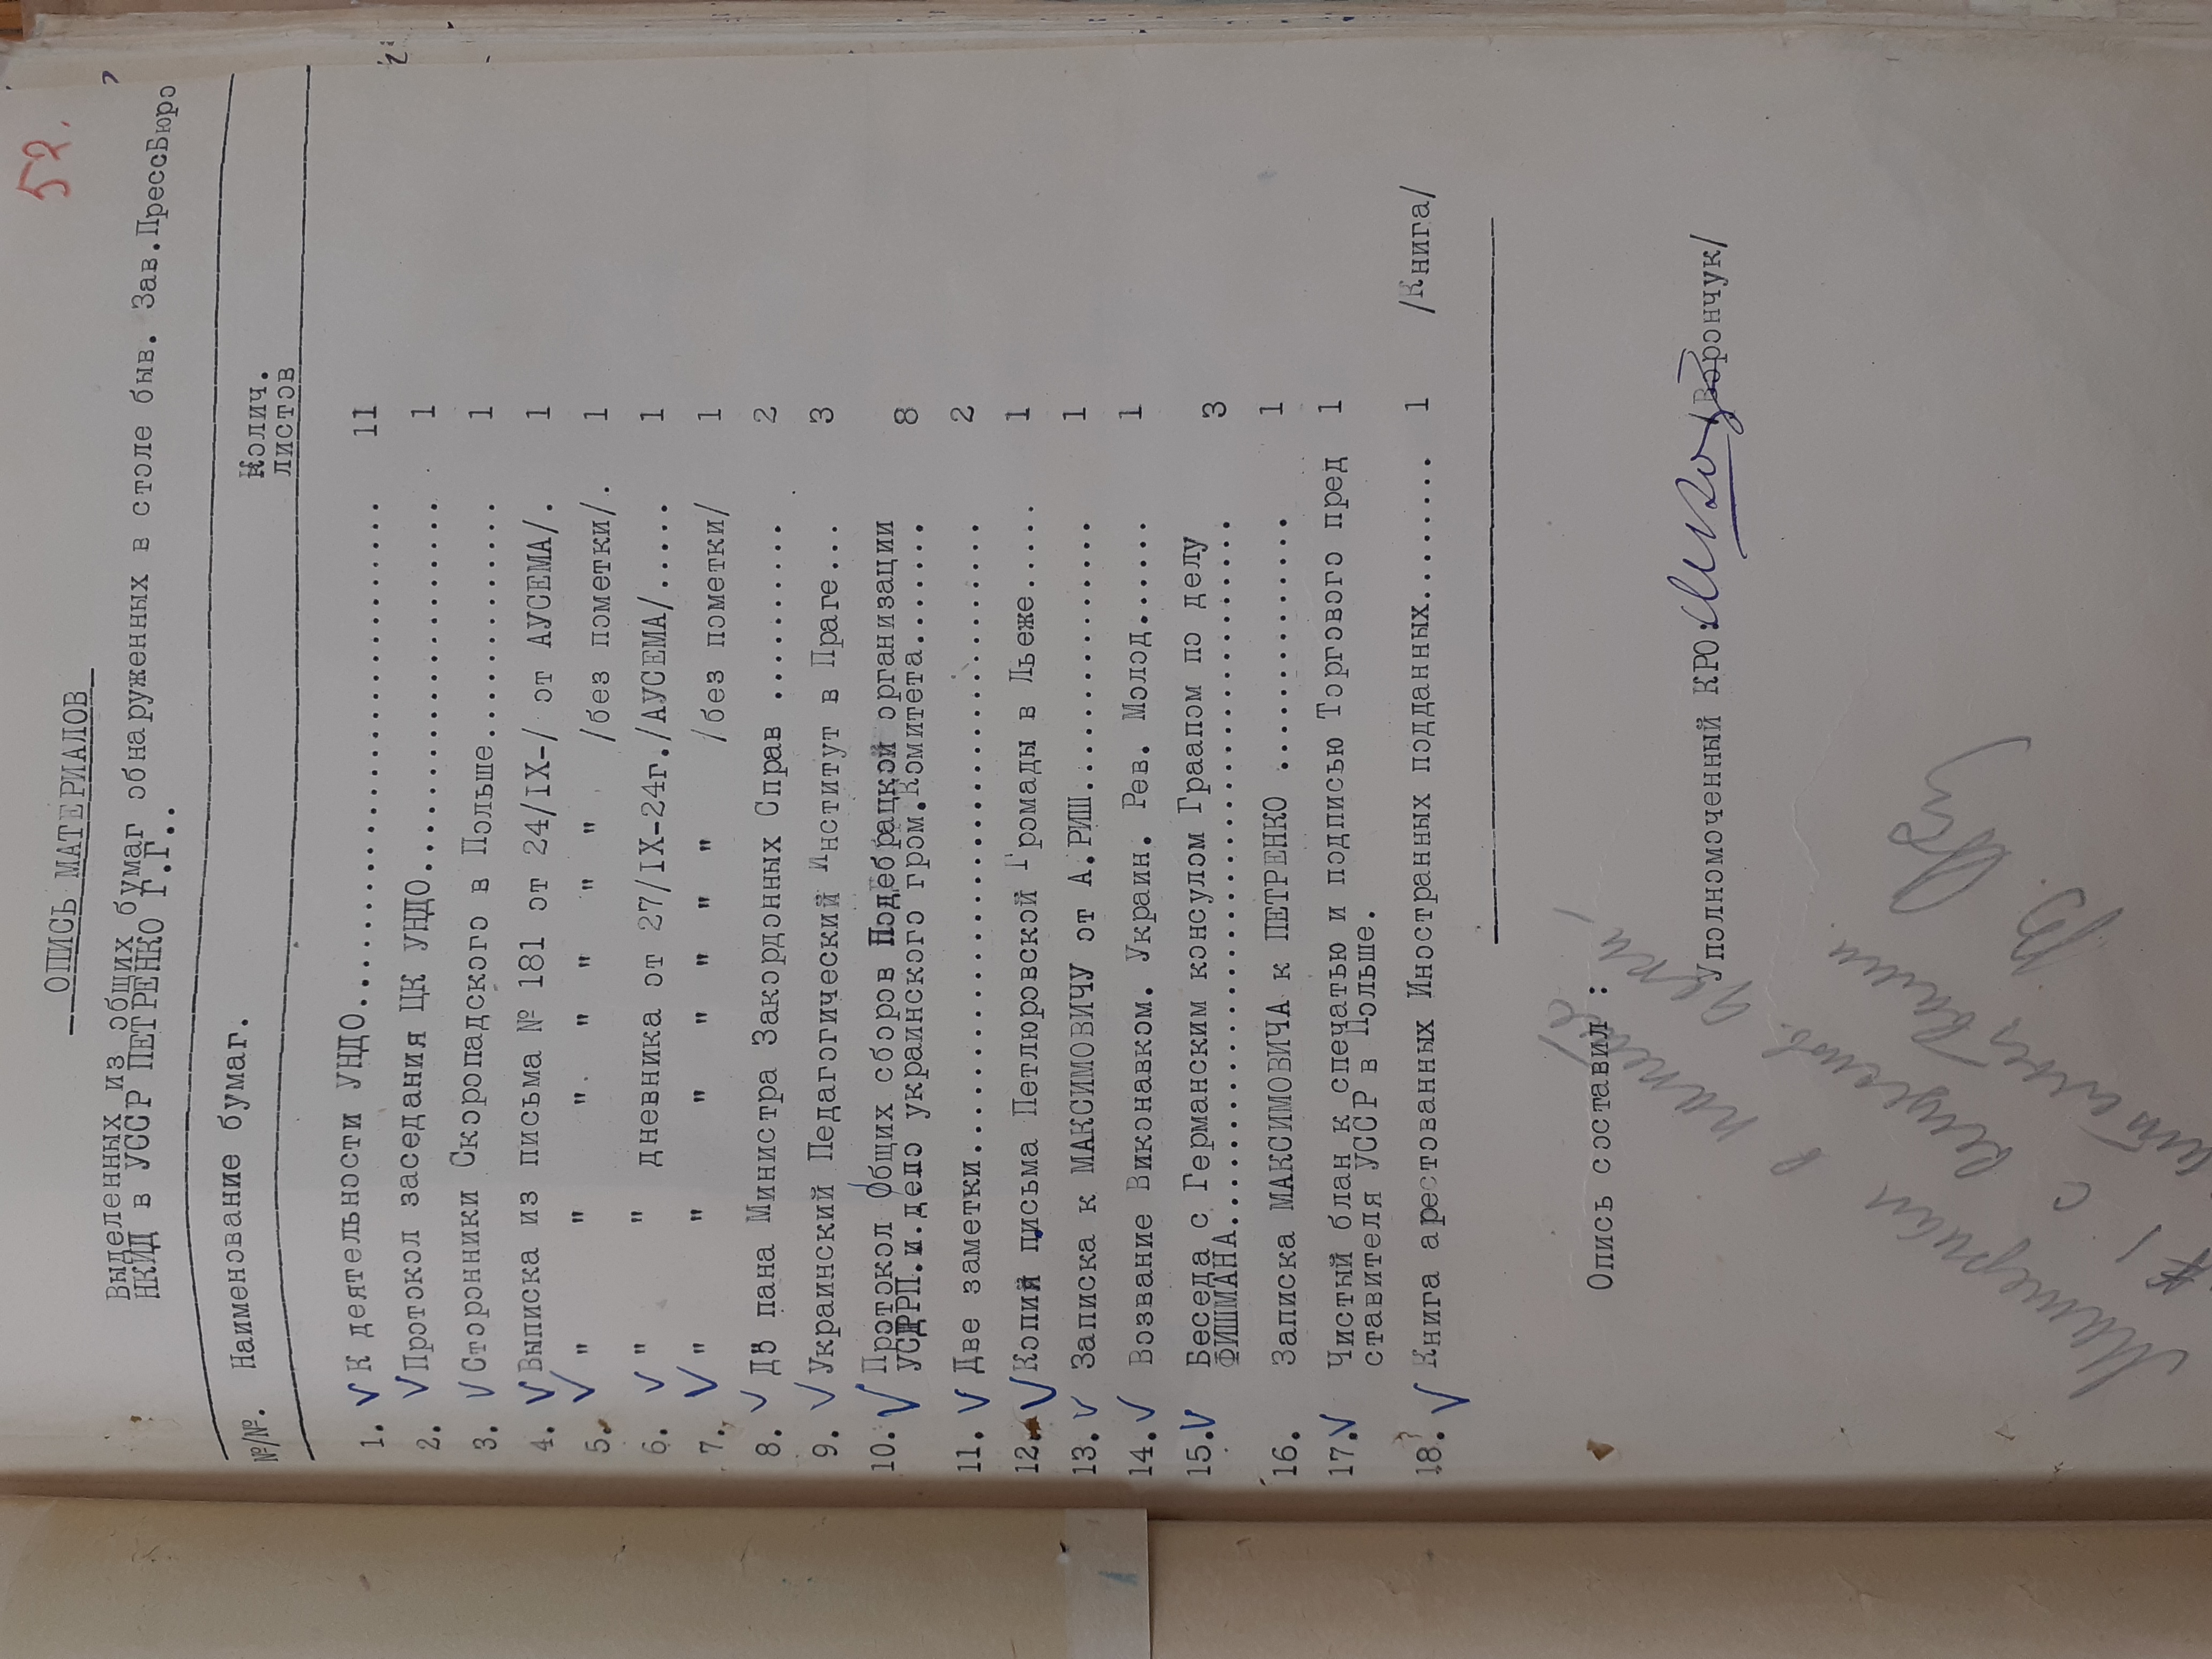 52.
ОПИСЬ МАТЕРИАЛОВ
Выделенных из общих бумаг обнаруженных в столе быв. Зав.ПрессБюро
НКИД в УССР ПЕТРЕНКО Г.Г..
№/№. Наименование бумаг. Колич.
листов
1. К деятельности УНДО........................ 11
2. Протокол заседания ЦК УНДО.................... 1
3. Сторонники Скоропадского в Польше............. 1
4. Выписка из письма № 181 от 24/IX-/ от АУСЕМА/. 1
5. " " " " " " /без пометки/. 1
6. " " дневника от 27/IX-24г./АУСЕМА/..... 1
7. " " " " " " " /без пометки/ 1
8. ДВ пана Министра Закордонных Справ .......... 2
9. Украинский Педагогический Институт в Праге... 3
10. Протокол Общих сборов Подебрацкой организации
УСДРП.и.дело украинского гром.Комитета........ 8
11. Две заметки............................... 2
12. Копия письма Петлюровской Громады в Льеже..... 1
13. Записка к МАКСИМОВИЧУ от А.РИШ............... 1
14. Возвание Виконавком. Украин. Рев. Молод...... 1
15. Беседа с Германским консулом Граапом по делу
ФИШМАНА.................................... 3
16. Записка МАКСИМОВИЧА к ПЕТРЕНКО .............. 1
17. Чистый блан к спечатью и подписью Торгового пред 1
ставителя УССР в Польше.
18. Книга арестованных Иностранных подданных......... 1 /Книга/
Опись составил :
Уполномоченный КРО: /Ворончук/
Материал в
№ 1 с